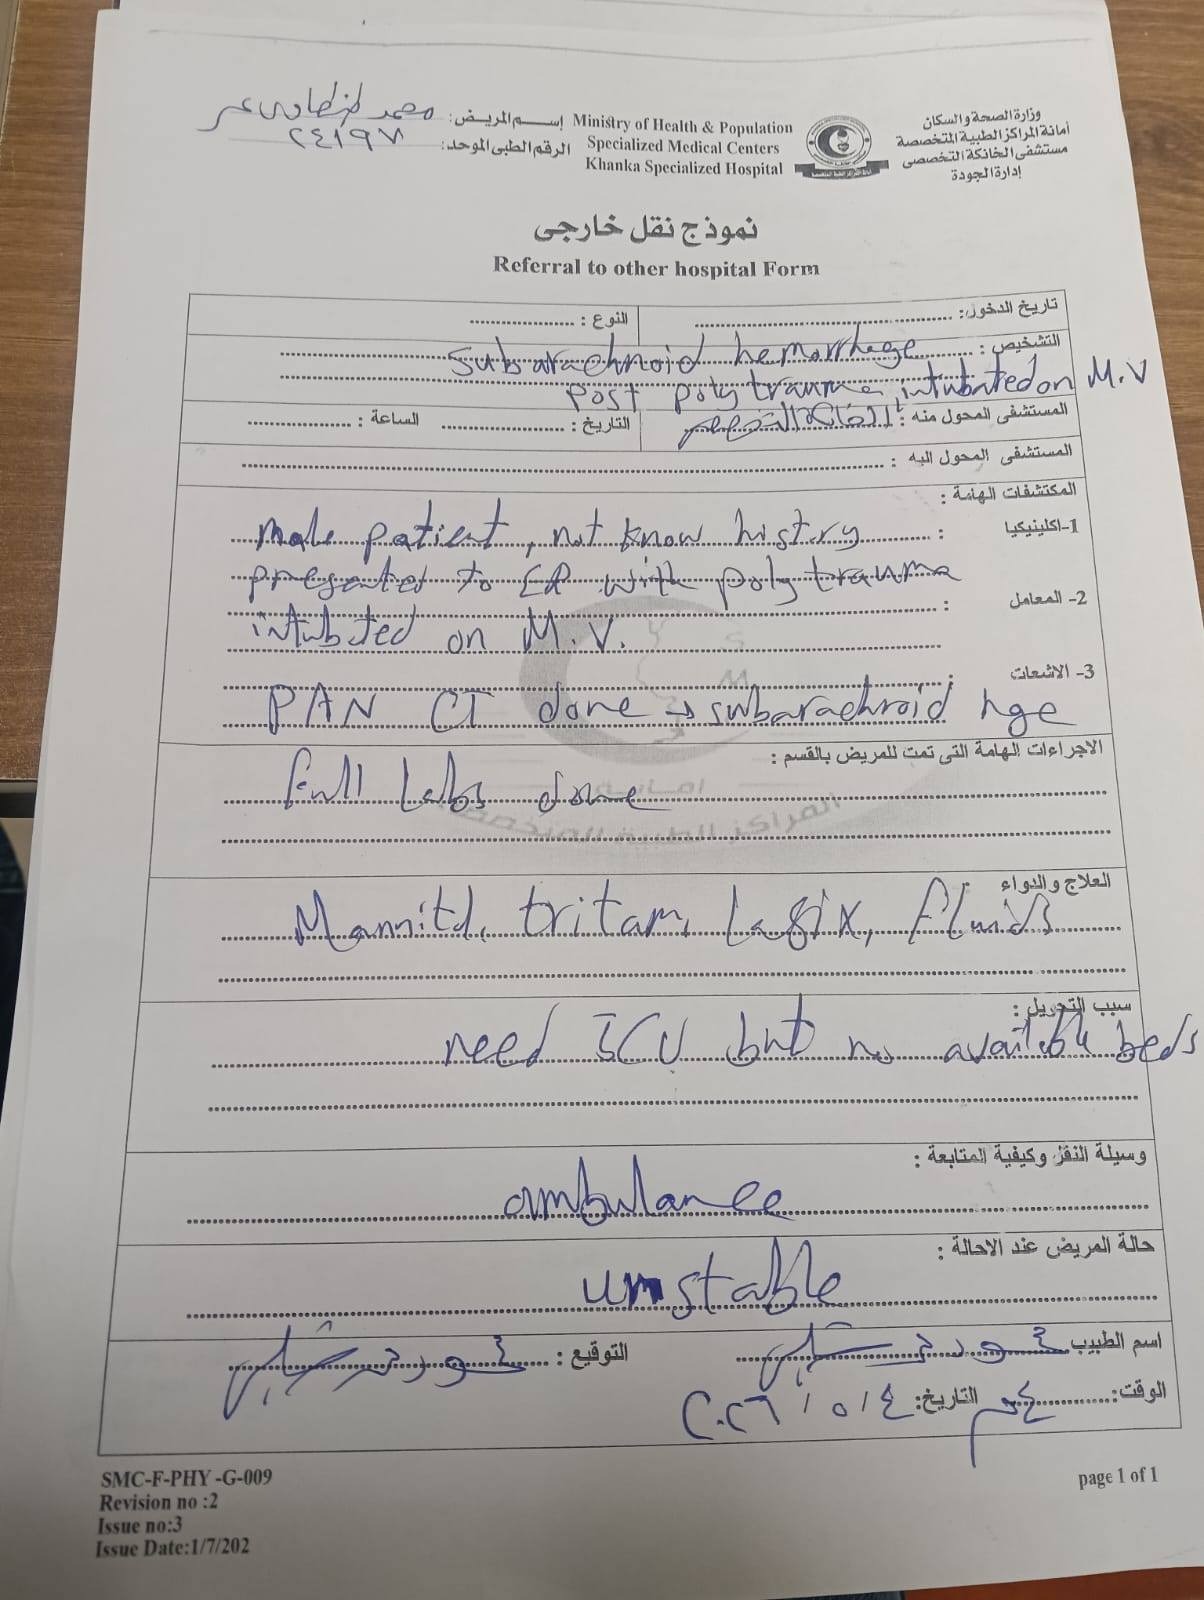 وزارة الصحة والسكان
أمانة المراكز الطبية المتخصصة
مستشفى الخانكة التخصصى
إدارة الجودة
Ministry of Health & Population
Specialized Medical Centers
Khanka Specialized Hospital
إسم المريض: محمد طنطاوى عمر
الرقم الطبى الموحد: ٢٤١٩٧
نموذج نقل خارجى
Referral to other hospital Form
تاريخ الدخول: النوع :
التشخيص : Subarachnoid hemorrhage
post poly trauma, intubated on M.V
المستشفى المحول منه : الخانكة التخصصى التاريخ : الساعة :
المستشفى المحول اليه :
المكتشفات الهامة :
1-اكلينيكيا : male patient, not know history
presented to ER with poly trauma
2- المعامل :
intubated on M.V.
3- الاشعات :
PAN CT done → subarachnoid hge
الاجراءات الهامة التى تمت للمريض بالقسم :
Full Labs done
العلاج والدواء :
Mannitol, tritam, Lasix, fluids
سبب التحويل :
need ICU but no available beds
وسيلة النقل وكيفية المتابعة :
ambulance
حالة المريض عند الاحالة :
unstable
اسم الطبيب التوقيع :
الوقت: ٤ م التاريخ: ٤ / ٥ / ٢٠٢٦
SMC-F-PHY -G-009
Revision no :2
Issue no:3
Issue Date:1/7/202
page 1 of 1